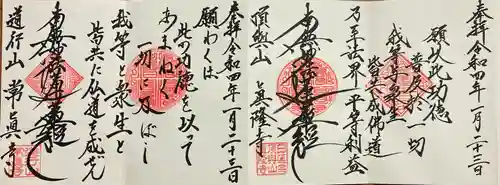 奉拝令和四年一月二十三日
願以此功徳
普及於一切
我等与衆生
皆共成佛道
乃至法界平等利益
南無妙法蓮華経
頂興山 真隆寺
奉拝令和四年一月二十三日
願わくは
此の功徳を以って
あまねく
一切に及ぼし
我等と衆生と
皆共に仏道を成ぜん
南無妙法蓮華経
道行山 常真寺